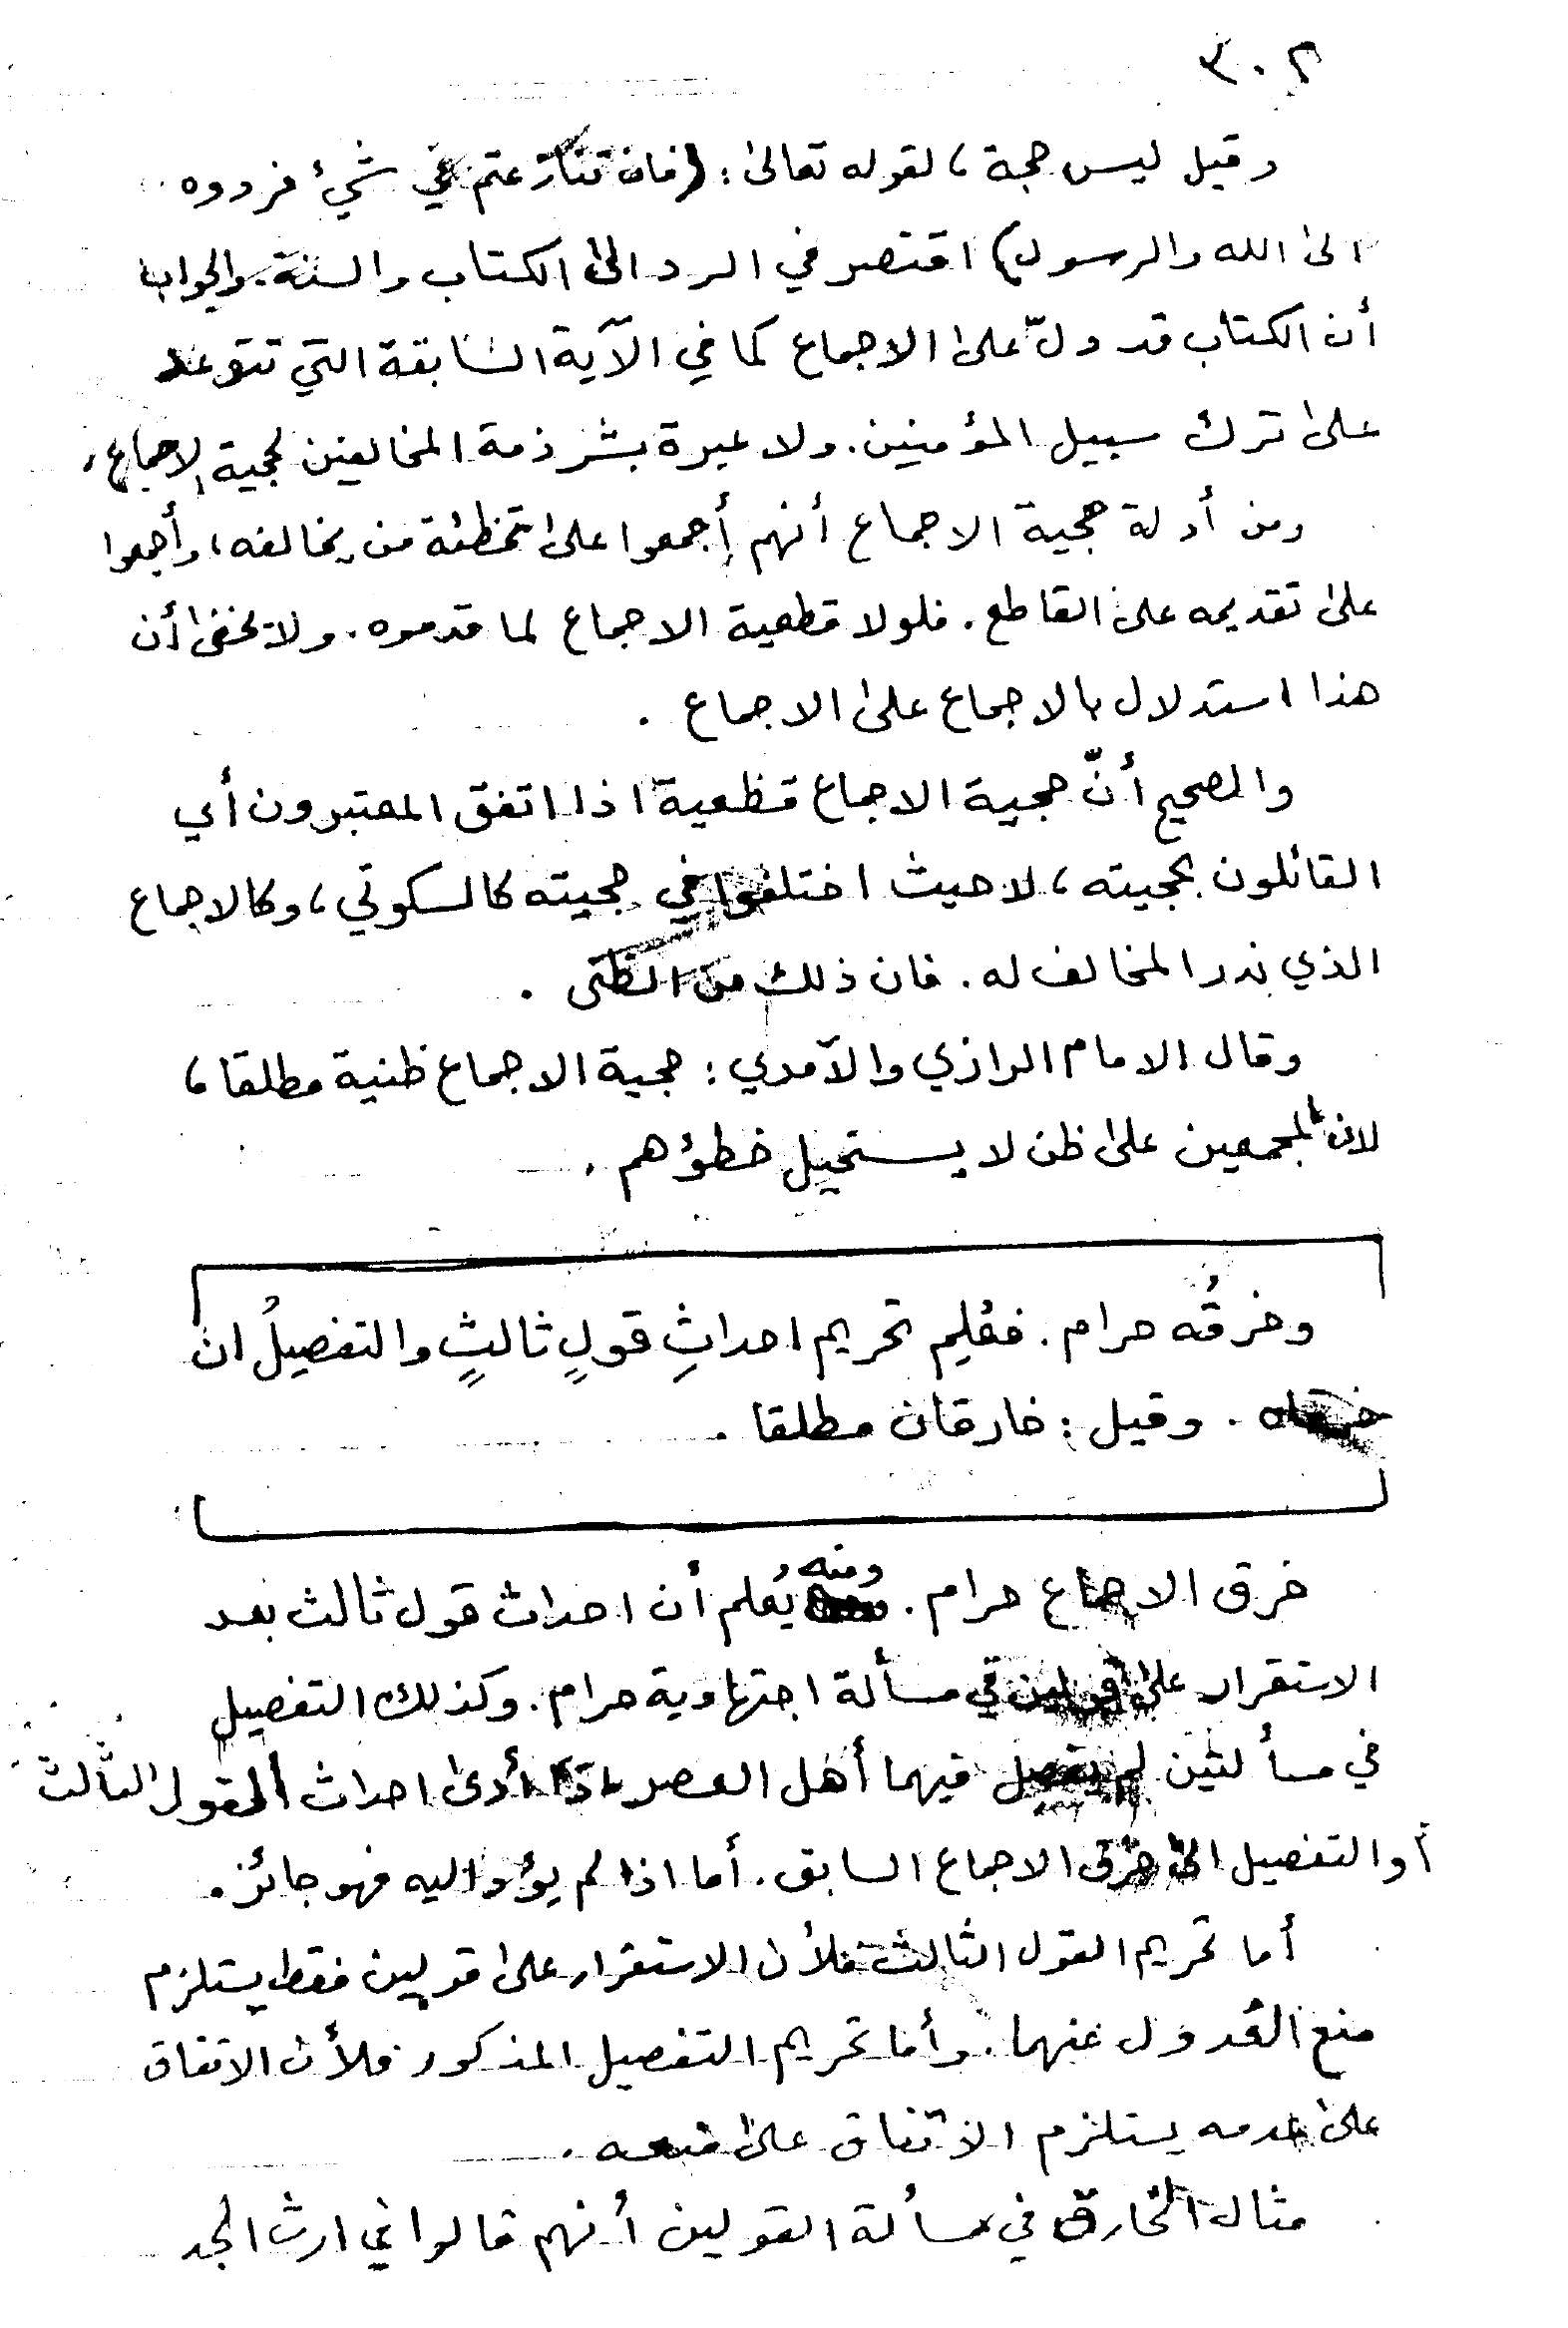 ٣٠٢
وقيل ليس حجة، لقوله تعالىٰ: (فان تنازعتم في شيء فردوه
الىٰ الله والرسول) اقتصر في الرد الىٰ الكتاب والسنة. والجواب
أن الكتاب قد دلّ علىٰ الاجماع كما في الآية السابقة التي تتوعد
علىٰ ترك سبيل المؤمنين. ولا عبرة بشرذمة المخالفين لحجية الاجماع.
ومن أدلة حجية الاجماع أنهم أجمعوا علىٰ تخطئة من يخالفه، وأجمعوا
علىٰ تقديمه علىٰ القاطع. فلولا قطعية الاجماع لما قدموه. ولا يخفىٰ أن
هذا استدلال بالاجماع علىٰ الاجماع.
والصحيح أنّ حجية الاجماع قطعية اذا اتفق المعتبرون أي
القائلون بحجيته، لا حيث اختلفوا في حجيته كالسكوتي، وكالاجماع
الذي ندر المخالف له. فان ذلك من الظني.
وقال الامام الرازي والآمدي: حجية الاجماع ظنية مطلقا،
لان المجمعين علىٰ ظن لا يستحيل خطؤهم.
وخرقُه حرام. فعُلِم تحريم احداثِ قولٍ ثالثٍ والتفصيلُ ان
خرقاه. وقيل: خارقان مطلقا.
خرق الاجماع حرام. ومنه يُعلم أن احداث قول ثالث بعد
الاستقرار علىٰ قولين في مسألة اجتهادية حرام. وكذلك التفصيل
في مسألتين لم يفصل فيهما أهل العصر اذا أدىٰ احداث القول الثالث
أو التفصيل الىٰ خرق الاجماع السابق. أما اذا لم يؤد اليه فهو جائز.
أما تحريم القول الثالث فلأن الاستقرار علىٰ قولين فقط يستلزم
منع العُدول عنهما. وأما تحريم التفصيل المذكور فلأن الاتفاق
علىٰ عدمه يستلزم الاتفاق علىٰ منعه.
مثال الخارق في مسألة القولين أنهم قالوا في ارث الجد